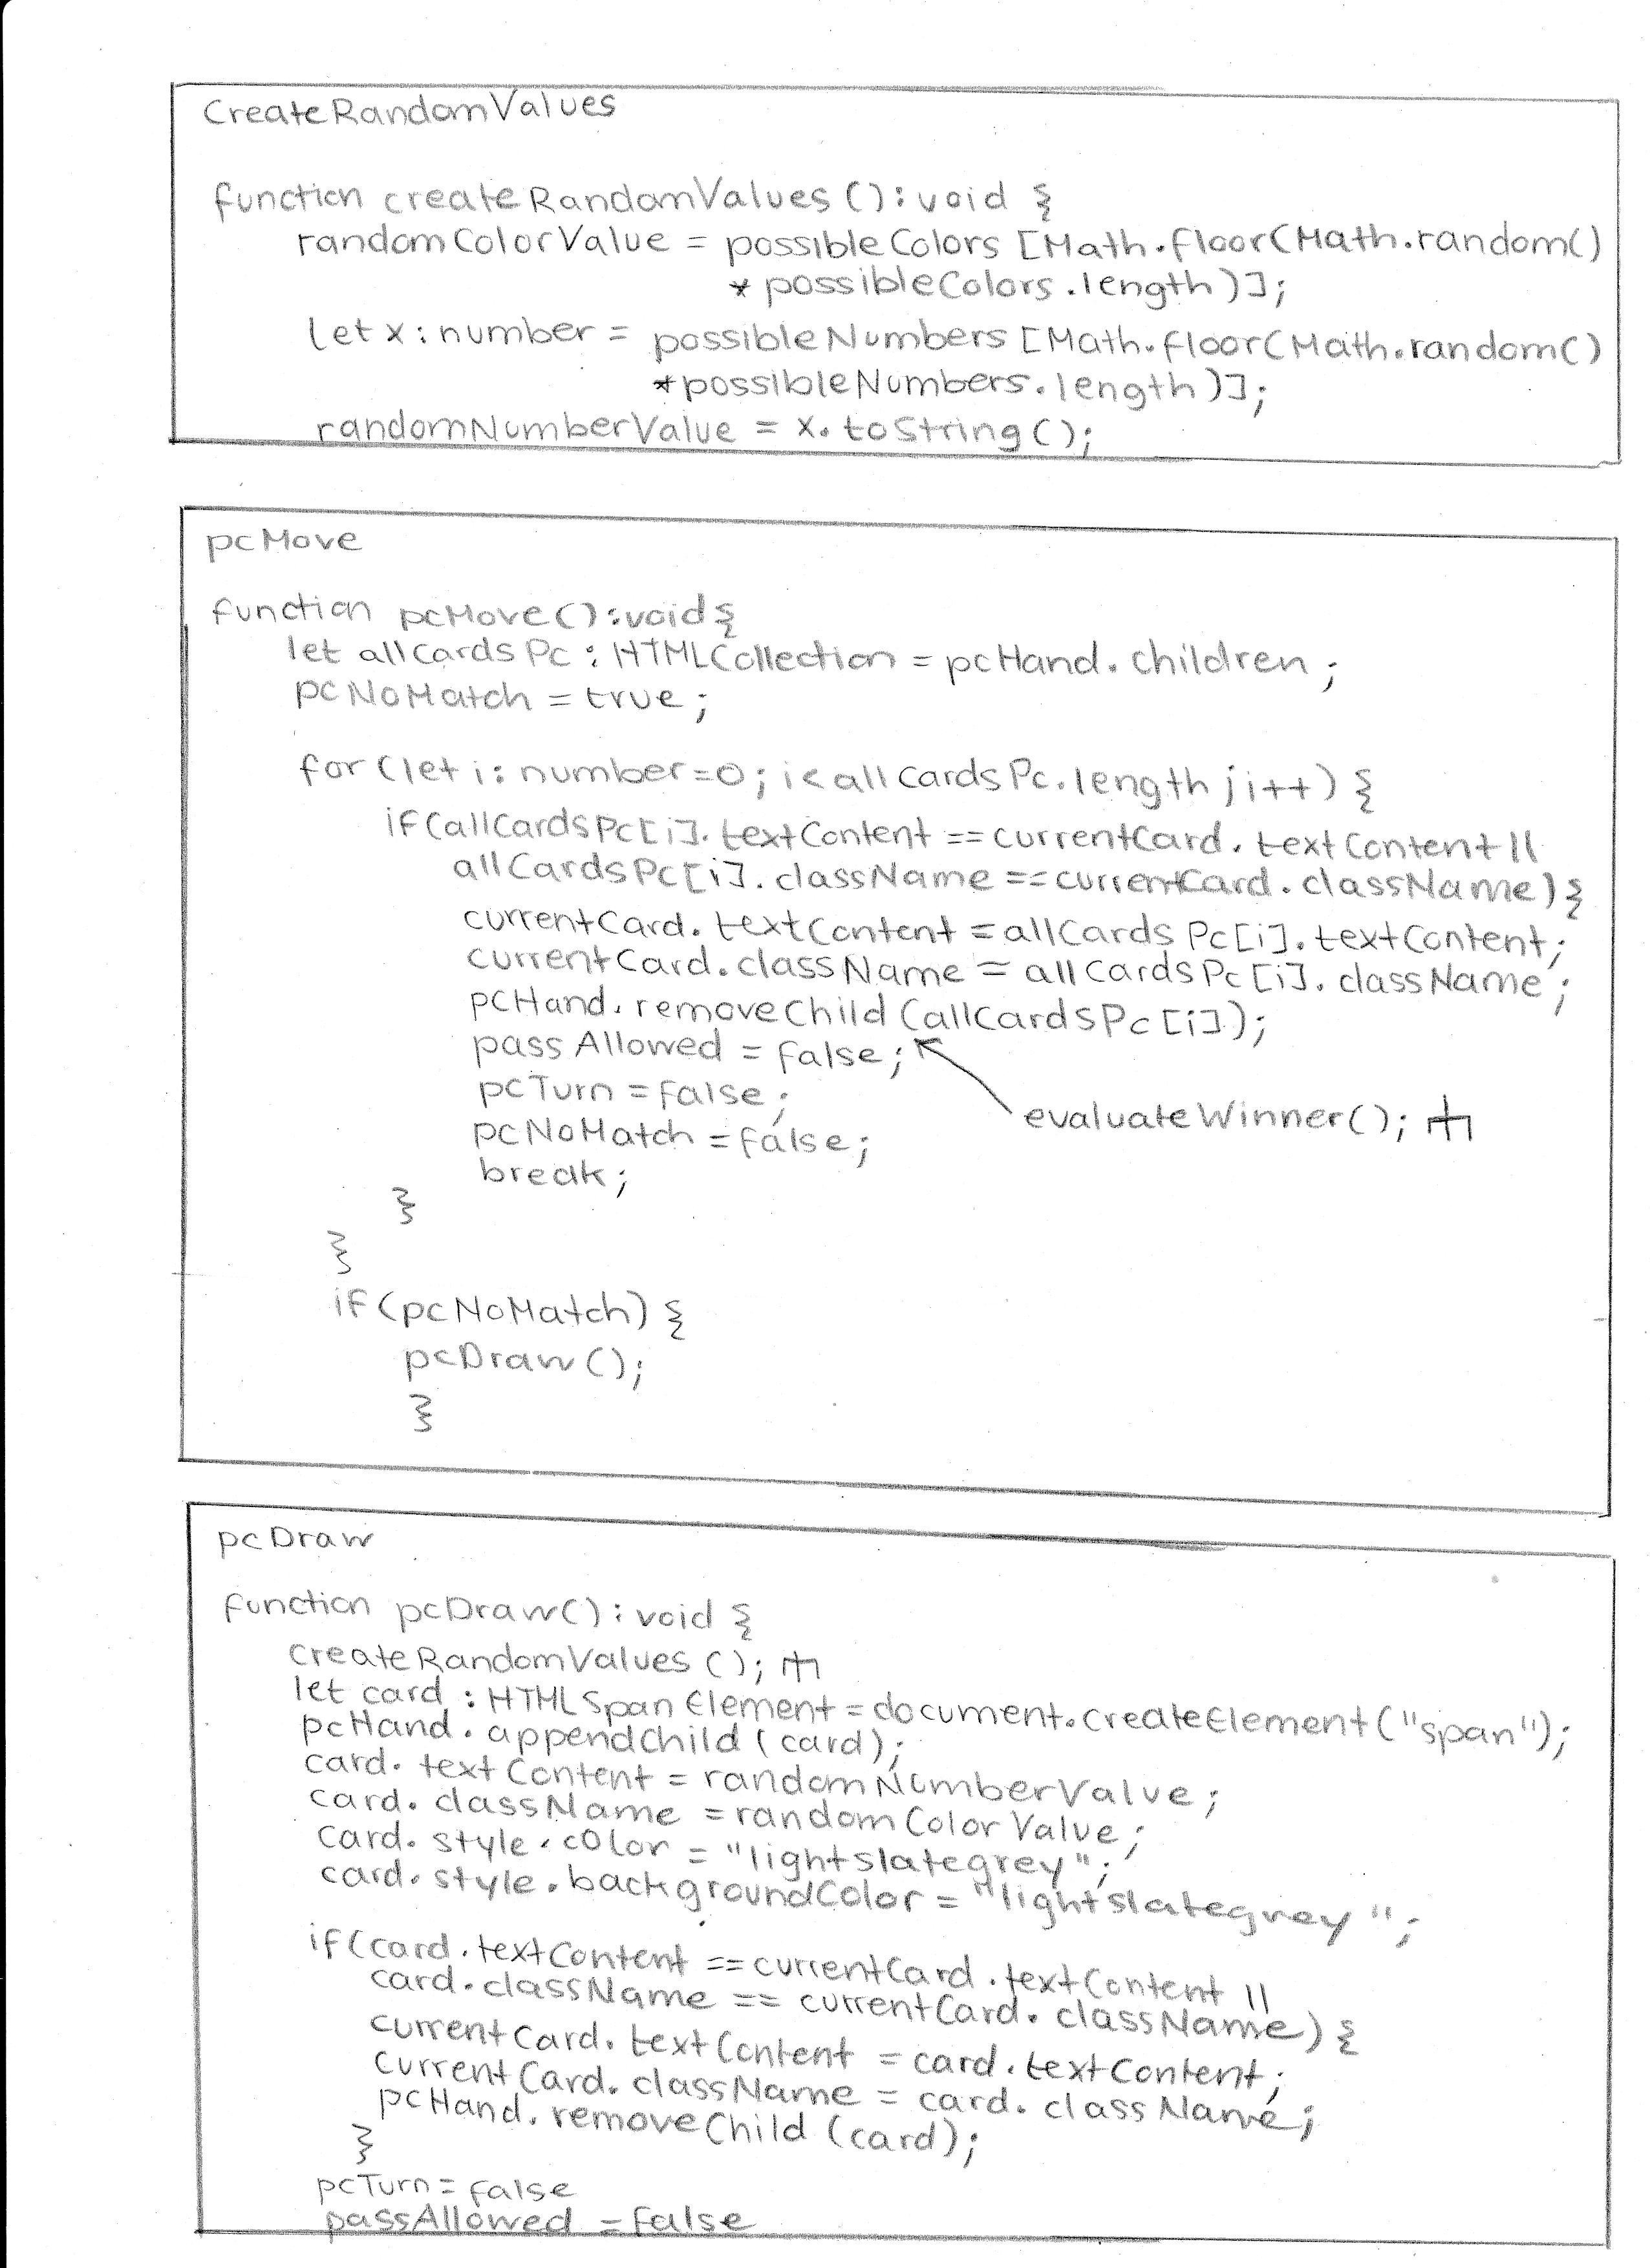 CreateRandomValues
function createRandomValues():void {
randomColorValue = possibleColors [Math.floor(Math.random()
* possibleColors.length)];
let x: number = possibleNumbers [Math.floor(Math.random()
*possibleNumbers.length)];
randomNumberValue = x.toString();
pcMove
function pcMove():void{
let allCardsPc : HTMLCollection = pcHand.children;
pcNoMatch = true;
for(let i: number=0; i< allCardsPc.length; i++) {
if(allCardsPc[i].textContent == currentCard.textContent ||
allCardsPc[i].className == currentCard.className) {
currentCard.textContent = allCardsPc[i].textContent;
currentCard.className = allCardsPc[i].className;
pcHand.removeChild (allCardsPc[i]);
passAllowed = false;
pcTurn = false;
evaluateWinner();
pcNoMatch = false;
break;
}
}
if(pcNoMatch) {
pcDraw();
}
pcDraw
function pcDraw(): void {
createRandomValues();
let card : HTMLSpanElement = document.createElement("span");
pcHand.appendChild (card);
card.textContent = randomNumberValue;
card.className = randomColorValue;
card.style.color = "lightslategrey";
card.style.backgroundColor = "lightslategrey";
if(card.textContent == currentCard.textContent ||
card.className == currentCard.className) {
currentCard.textContent = card.textContent;
currentCard.className = card.className;
pcHand.removeChild (card);
}
pcTurn = false
passAllowed = false